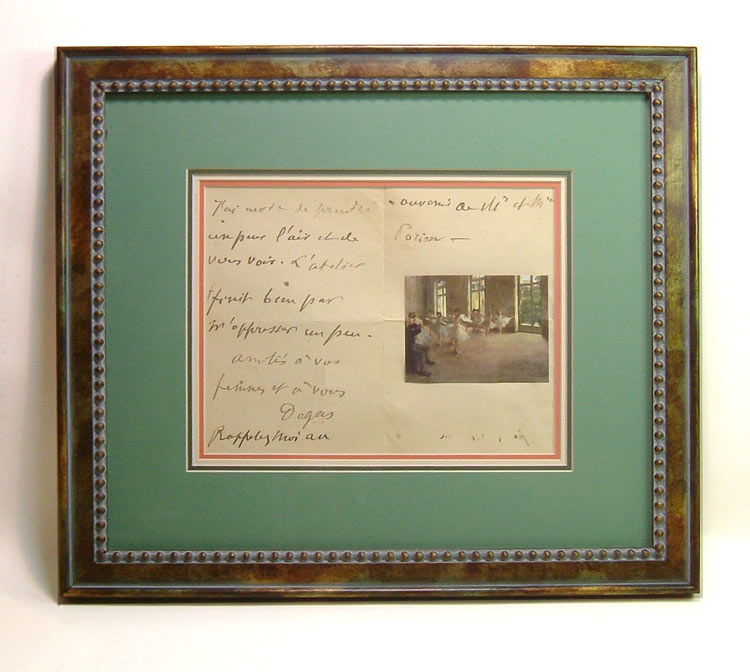 J'ai hâte de prendre
un peu l'air et de
vous voir. L'atelier
finit bien par
m'oppresser un peu.
amitiés à vos
femmes et à vous
Degas
Rappelez moi au
souvenir de Mr et Me